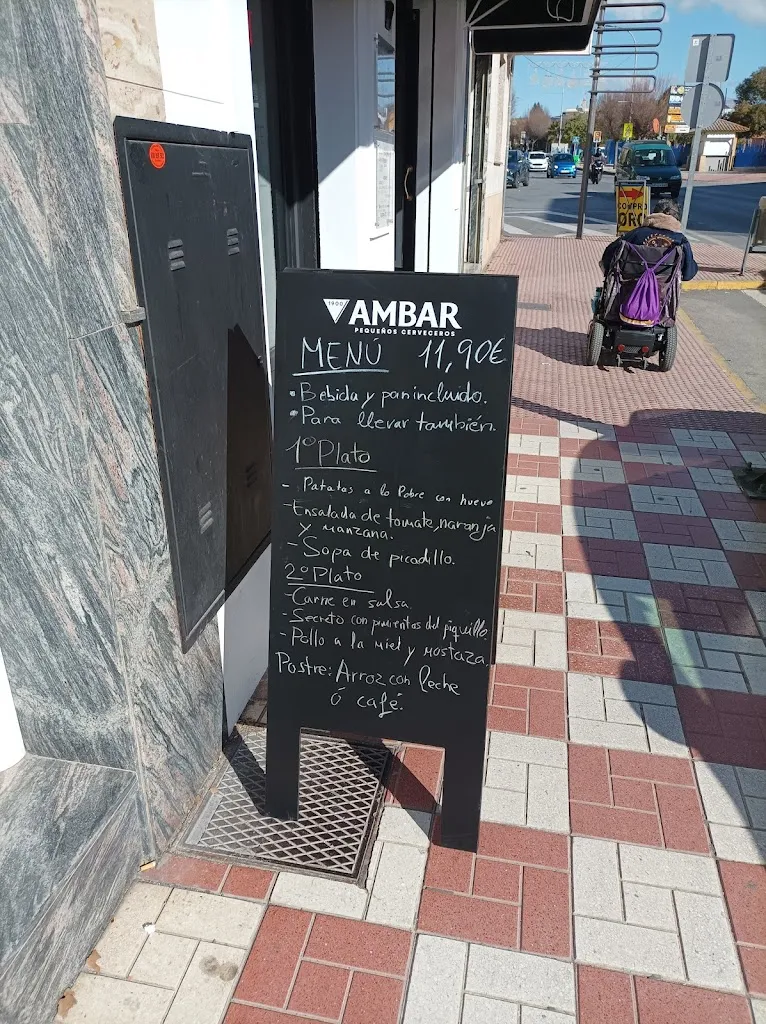 1900
AMBAR
PEQUEÑOS CERVECEROS
MENÚ 11,90€
• Bebida y pan incluido.
• Para llevar también.
1º Plato
- Patatas a lo Pobre con huevo
- Ensalada de tomate, naranja
y manzana.
- Sopa de picadillo.
2º Plato
- Carne en salsa
- Secreto con pimientos del piquillo.
- Pollo a la miel y mostaza.
Postre: Arroz con leche
ó café.
COMPRO
ORO